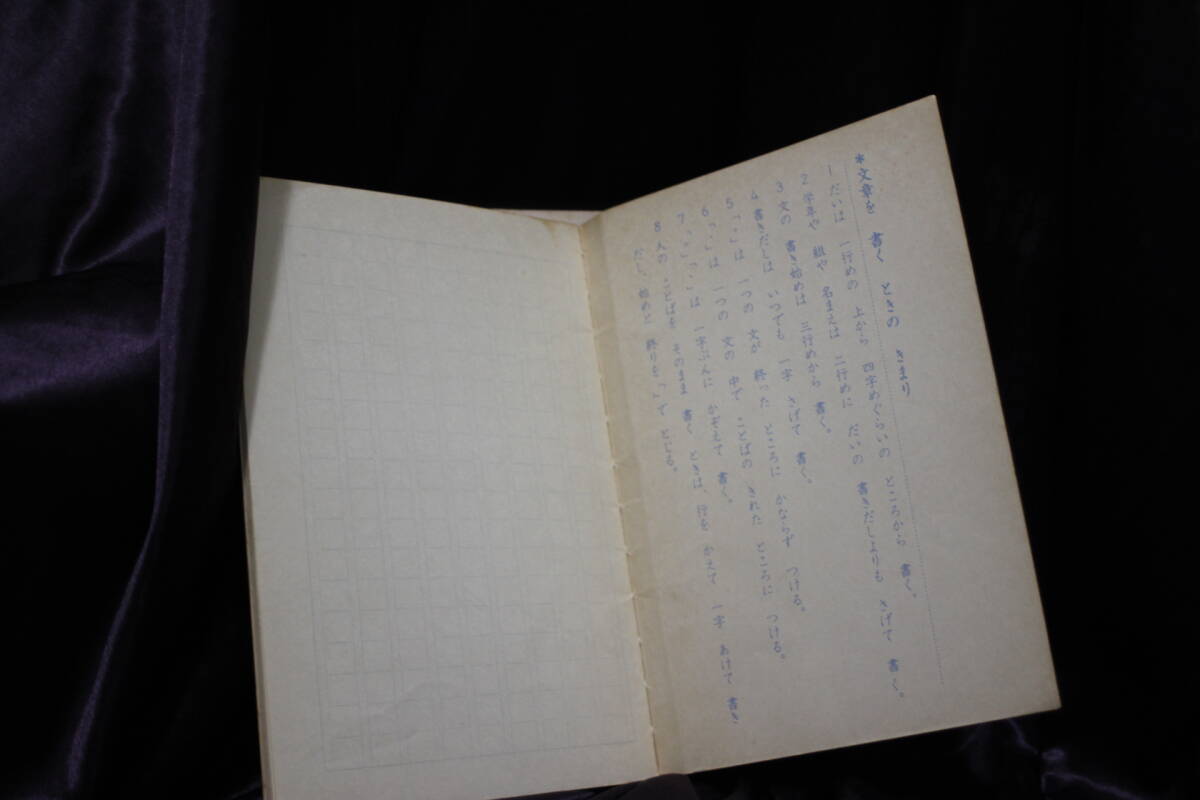 *文章を 書く ときの きまり
1 だいは 一行めの 上から 四字めぐらいの ところから 書く。
2 学年や 組や 名まえは 二行めに だいの 書きだしよりも さげて 書く。
3 文の 書き始めは 三行めから 書く。
4 書きだしは いつでも 一字 さげて 書く。
5 「。」は 一つの 文が 終った ところに かならず つける。
6 「、」は 一つの 文の 中で ことばの きれた ところに つける。
7 「。」「、」は 一字ぶんに かぞえて 書く。
8 人の ことばを そのまま 書く ときは、行を かえて 一字 あけて 書き
だし、始めと 終りを「 」で とじる。